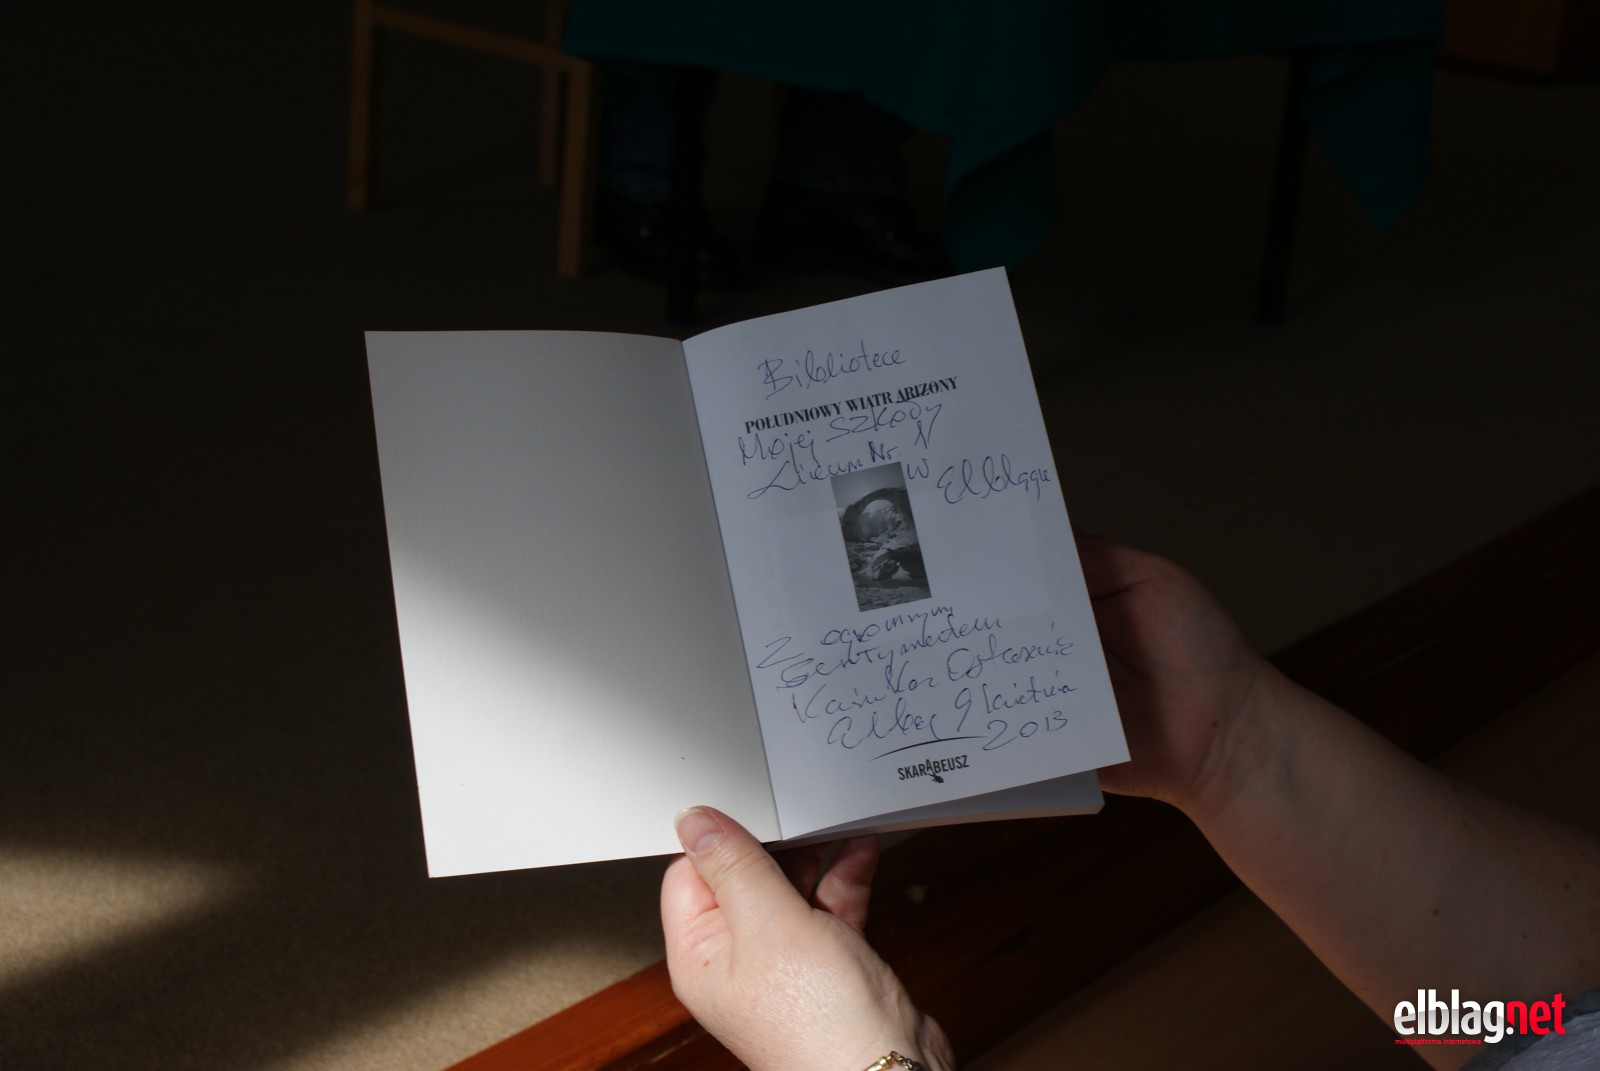 Bibliotece
POŁUDNIOWY WIATR ARIZONY
Mojej Szkoły
Liceum Nr. IV
w Elblągu
Z ogromnym
sentymentem
Elbląg 9 kwietnia
2013
SKARABEUSZ
elblag.net
multiplatforma internetowa